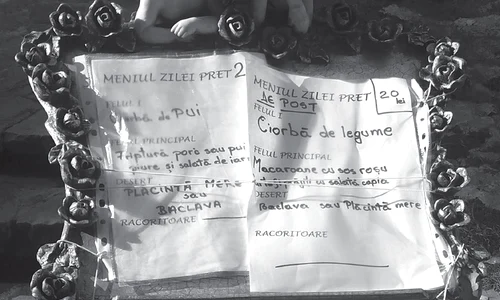 MENIUL ZILEI PRET 2
FELUL I
Ciorbă de Pui
FELUL PRINCIPAL
Friptură porc sau pui
piure și salată de
DESERT
PLACINTĂ MERE
sau
BACLAVA
RACORITOARE
MENIUL ZILEI PRET 20 lei
DE POST
FELUL I
Ciorbă de legume
FELUL PRINCIPAL
Macaroane cu sos roșu
cu salată capia
DESERT
Baclava sau Placintă mere
RACORITOARE